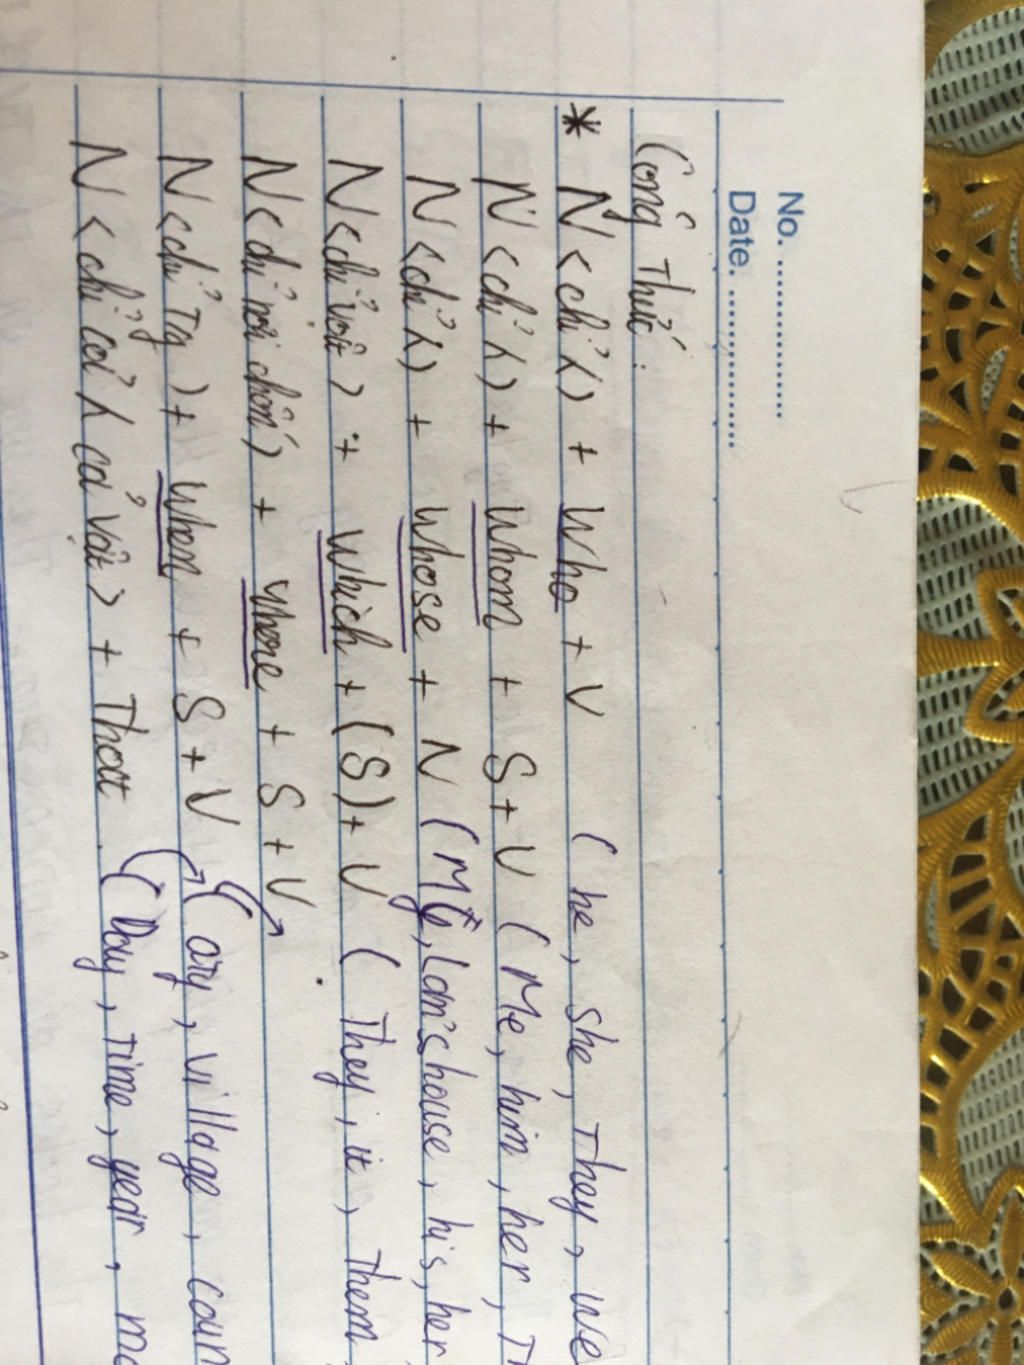 No. ................
Date. ................
Công Thức:
* N <chỉ λ> + Who + V ( he, she, They, we
N <chỉ λ> + Whom + S + V ( Me, him, her,
N <chỉ λ) + whose + N ( My, Lan's house, his, her
N <chỉ vật> + which + (S) + V ( They, it, Them
N <chỉ nơi chốn) + where + S + V
N <chỉ Tg) + when + S + V ( city, village, coun
N <chỉ cả λ cả vật> + That ( Day, Time, year, mo